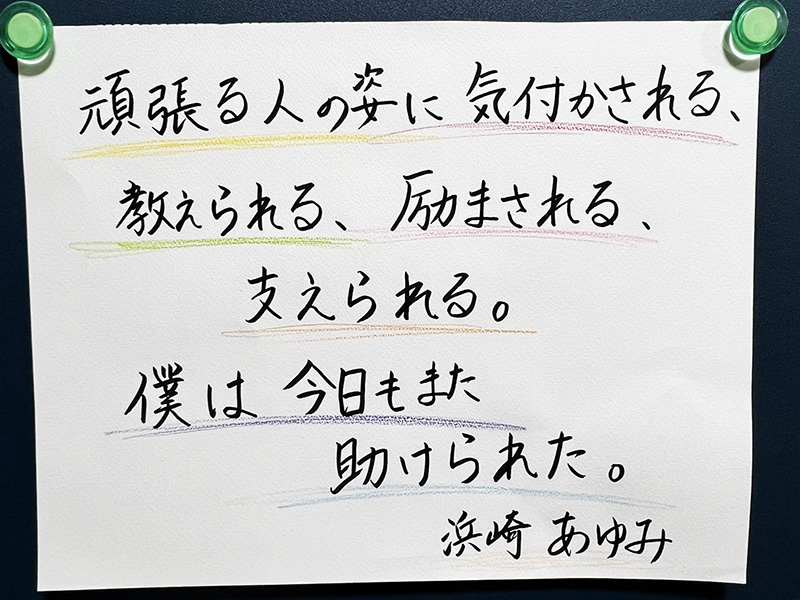 頑張る人の姿に 気付かされる、
教えられる、励まされる、
支えられる。
僕は 今日もまた
助けられた。
浜崎 あゆみ